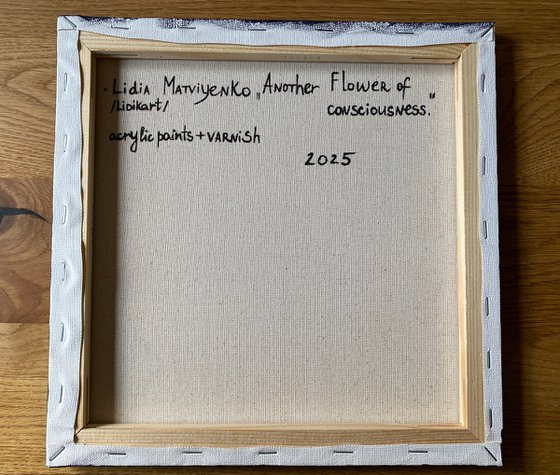 · Lidia Matviyenko „Another Flower of
/Lidikart/ consciousness.“
acrylic paints + varnish
2025